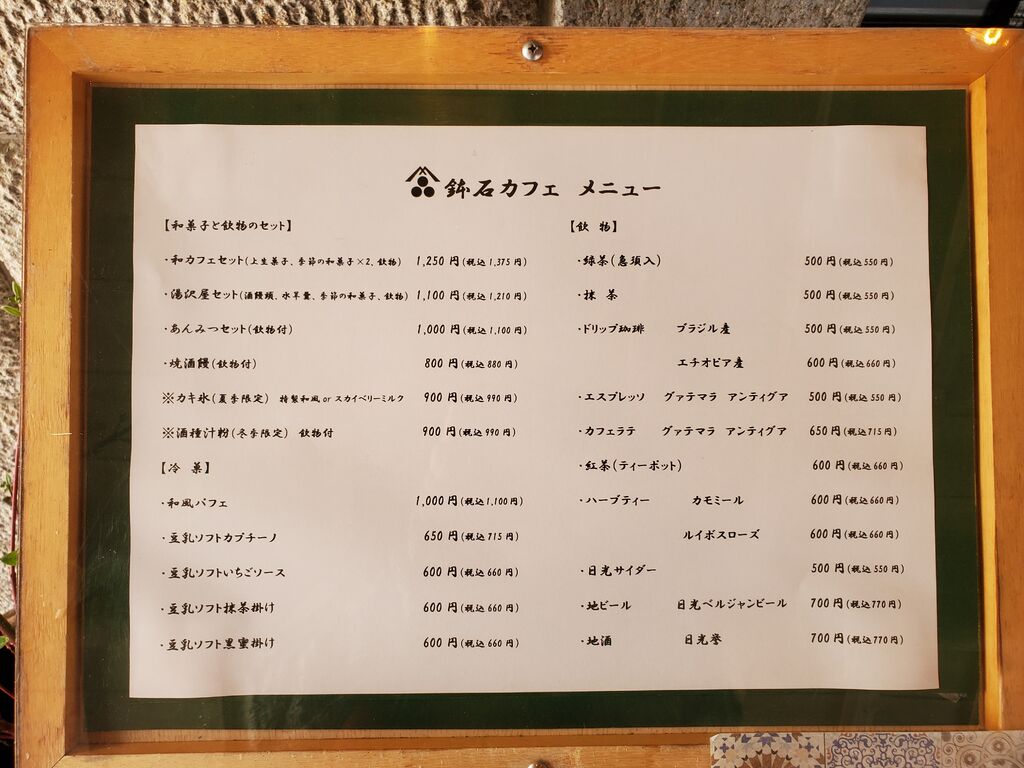 鉢石カフェ メニュー
【和菓子と飲物のセット】
・和カフェセット(上生菓子、季節の和菓子×2、飲物) 1,250 円(税込 1,375 円)
・湯沢屋セット(酒饅頭、水羊羹、季節の和菓子、飲物) 1,100 円(税込 1,210 円)
・あんみつセット(飲物付) 1,000 円(税込 1,100 円)
・焼酒饅(飲物付) 800 円(税込 880 円)
※カキ氷(夏季限定) 特製和風 or スカイベリーミルク 900 円(税込 990 円)
※酒種汁粉(冬季限定) 飲物付 900 円(税込 990 円)
【冷 菓】
・和風パフェ 1,000 円(税込 1,100 円)
・豆乳ソフトカプチーノ 650 円(税込 715 円)
・豆乳ソフトいちごソース 600 円(税込 660 円)
・豆乳ソフト抹茶掛け 600 円(税込 660 円)
・豆乳ソフト黒蜜掛け 600 円(税込 660 円)
【飲 物】
・緑茶(急須入) 500 円(税込 550 円)
・抹 茶 500 円(税込 550 円)
・ドリップ珈琲 ブラジル産 500 円(税込 550 円)
エチオピア産 600 円(税込 660 円)
・エスプレッソ グァテマラ アンティグア 500 円(税込 550 円)
・カフェラテ グァテマラ アンティグア 650 円(税込 715 円)
・紅茶(ティーポット) 600 円(税込 660 円)
・ハーブティー カモミール 600 円(税込 660 円)
ルイボスローズ 600 円(税込 660 円)
・日光サイダー 500 円(税込 550 円)
・地ビール 日光ベルジャンビール 700 円(税込 770 円)
・地酒 日光誉 700 円(税込 770 円)